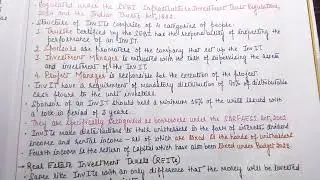 • Regulated under the SEBI (Infrastructure Investment Trust) Regulations,
2014 and the Indian Trusts Act, 1882.
• Structure of InvITs comprise of 4 categories of people:
1. Trustee certified by the SEBI has the responsibility of inspecting the
performance of an InvIT.
2. Sponsors are promoters of the company that set up the InvIT
3. Investment Manager is entrusted with the task of supervising the assets
and investment of the InvIT.
4. Project Manager is responsible for the execution of the project
• InvITs have a requirement of mandatory distribution of 90% of distributable
cash flows to the unit investors.
• Sponsor of an InvIT should hold a minimum 15% of the units issued with
a lock in period of 3 years.
• They are specifically recognised as borrowers under the SARFAESI Act, 2002
• InvITs make distributions to their unitholders in the form of interests, dividend
income and rental income - all of which are taxed in the hands of unitholders
Fourth income is the return of Capital which have also been taxed under Budget 2023
→ Real Estate Investment Trusts (REITs)
• Same like InvITs with an only difference that the money will be invested